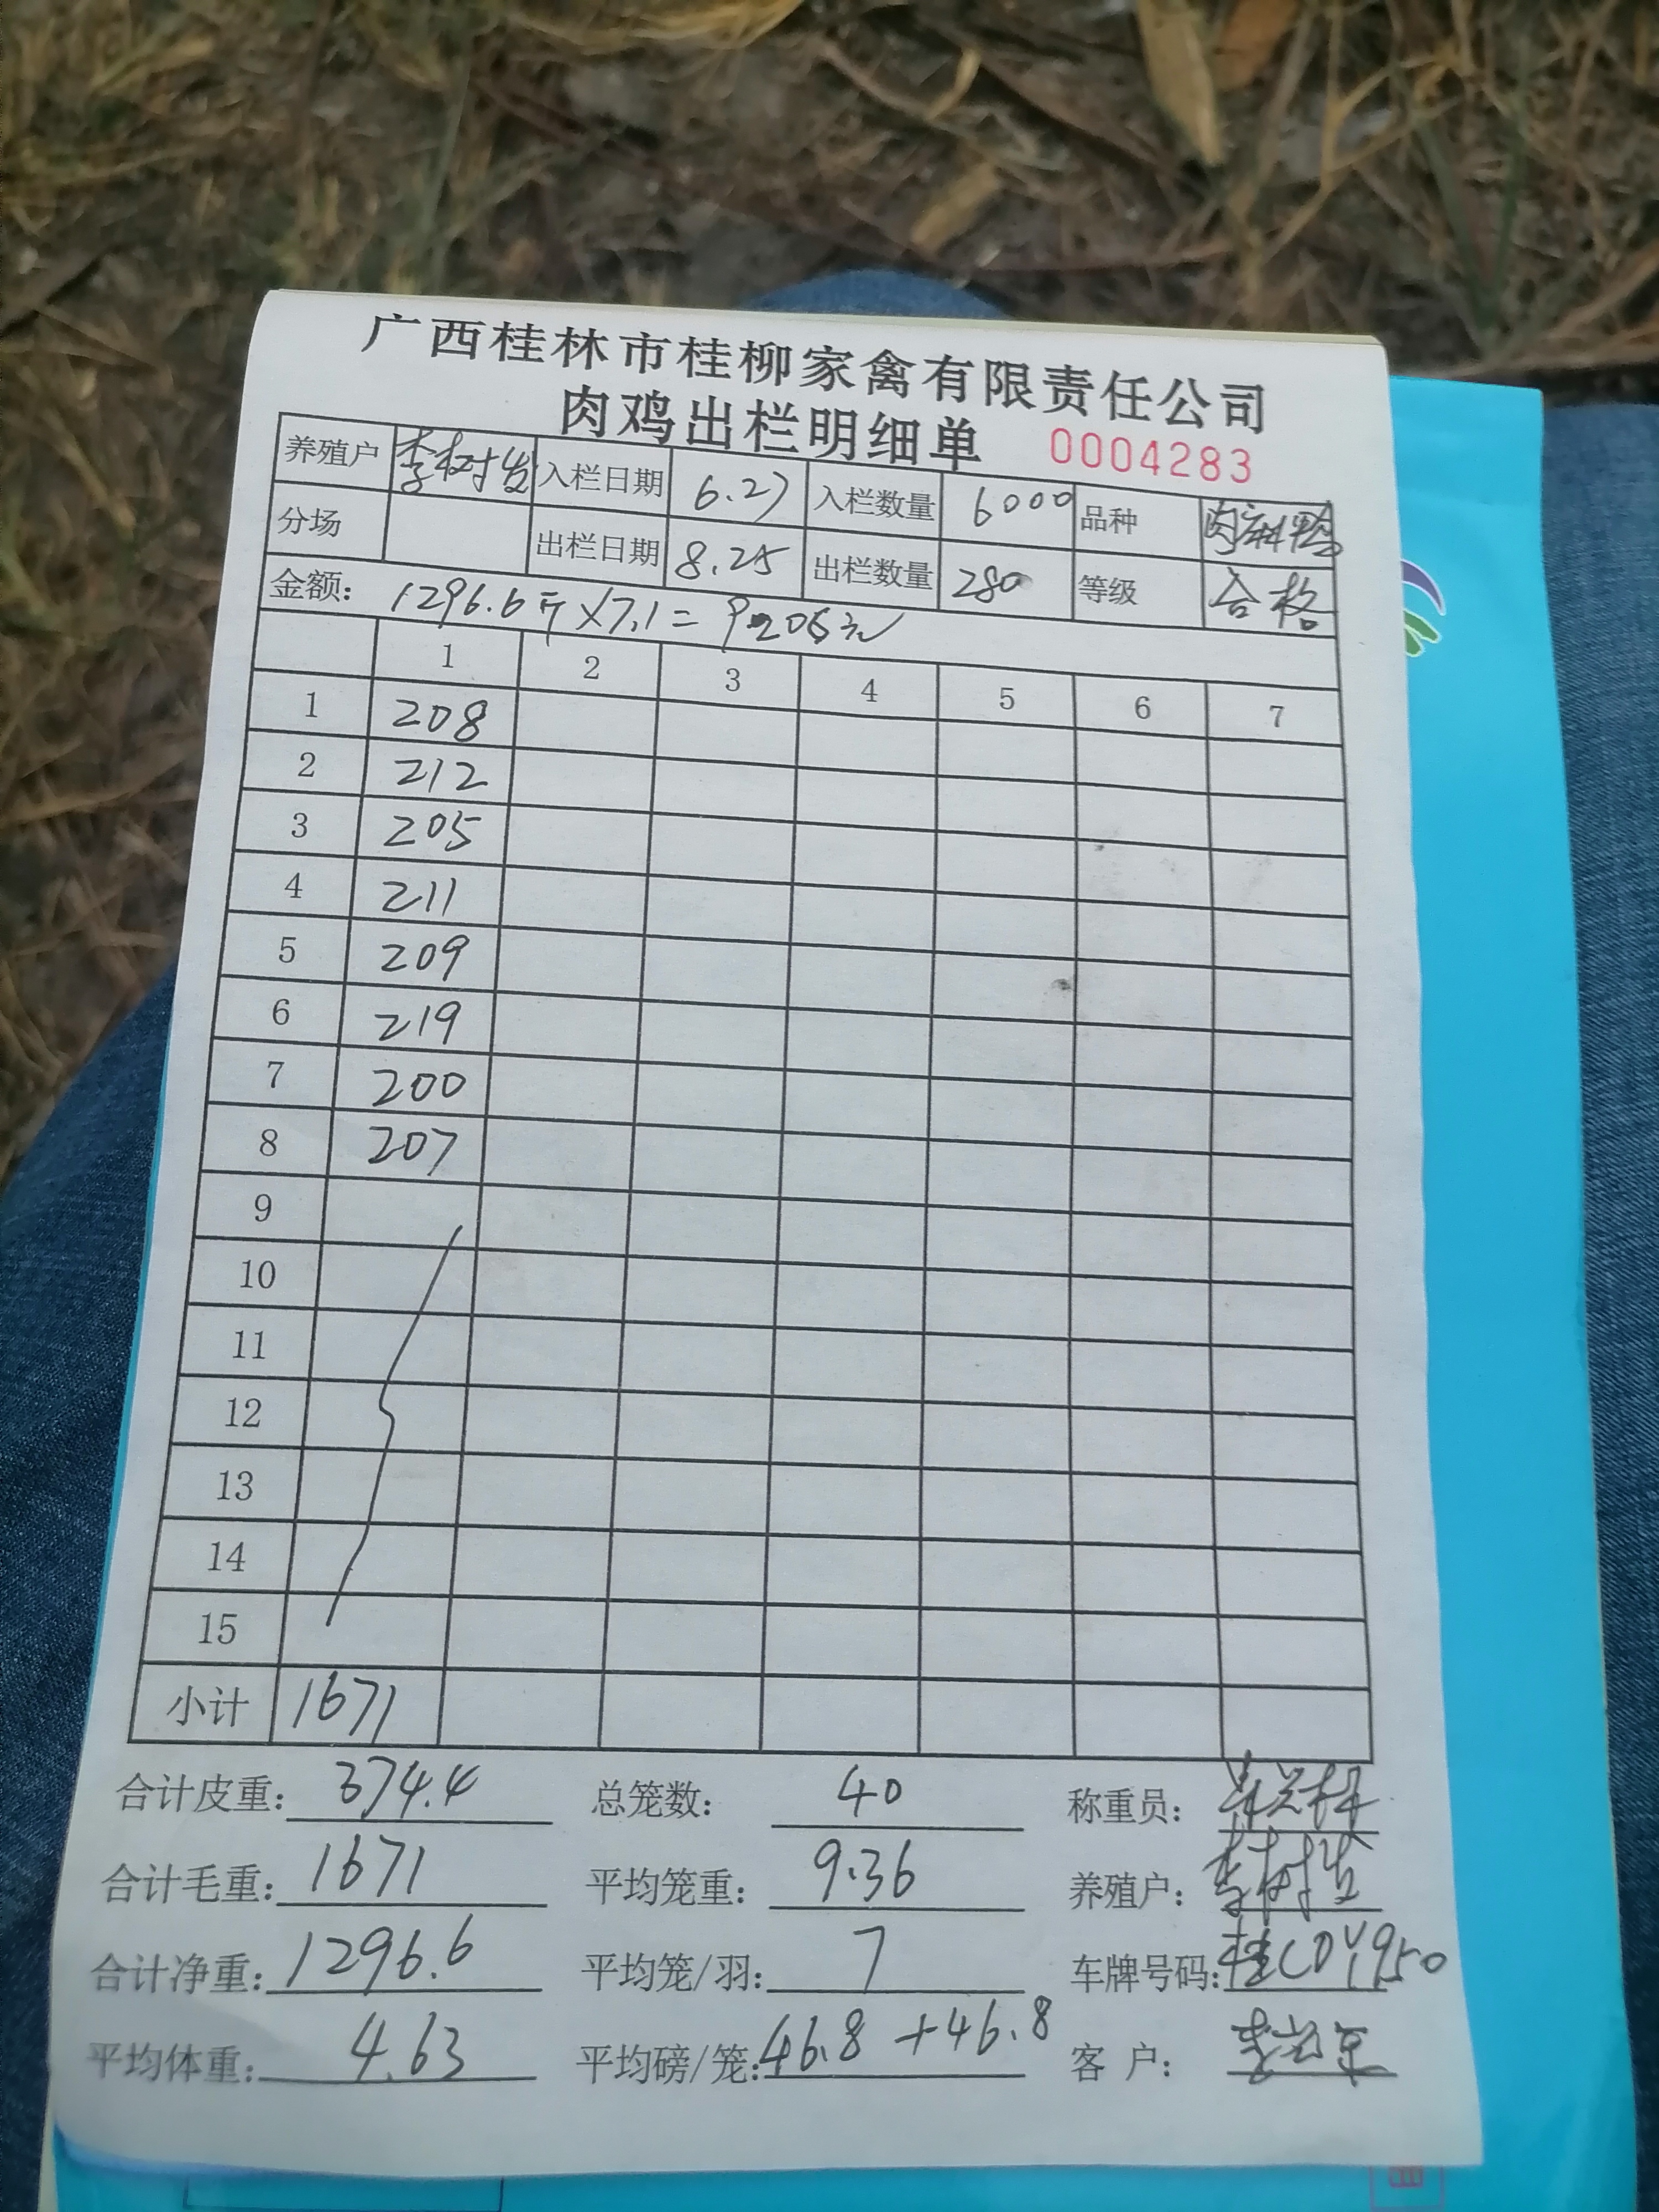 广西桂林市桂柳家禽有限责任公司
肉鸡出栏明细单 0004283
养殖户 李树发 入栏日期 6.27 入栏数量 6000 品种 肉麻鸭
分场 出栏日期 8.25 出栏数量 280 等级 合格
金额: 1296.6斤×7.1=9206元
1 2 3 4 5 6 7
1 208
2 212
3 205
4 211
5 209
6 219
7 200
8 207
9
10
11
12
13
14
15
小计 1671
合计皮重: 374.4 总笼数: 40 称重员:
合计毛重: 1671 平均笼重: 9.36 养殖户: 李树发
合计净重: 1296.6 平均笼/羽: 7 车牌号码: 桂CDY950
平均体重: 4.63 平均磅/笼: 46.8+46.8 客 户: